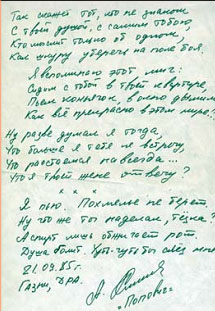 Так скажет тот, кто не знаком
С твоей душой, с самим тобою,
Кто мыслит только об одном,
Как шкуру уберечь на поле боя.
Я вспоминаю этот миг:
Сидим с тобой в твоей квартире,
Пьём коньячок, в окно дымим
Как всё прекрасно в этом мире!
Ну разве думал я тогда,
Что больше я тебя не встречу,
Что расстаёмся навсегда...
Что я твоей жене отвечу?
* * *
Я пью. Похмелье не берёт.
Ну что же ты наделал, тёзка?
А спирт лишь обжигает рот
Душа болит.
21.09.85г.
Газни, ДРА.
"Попович"